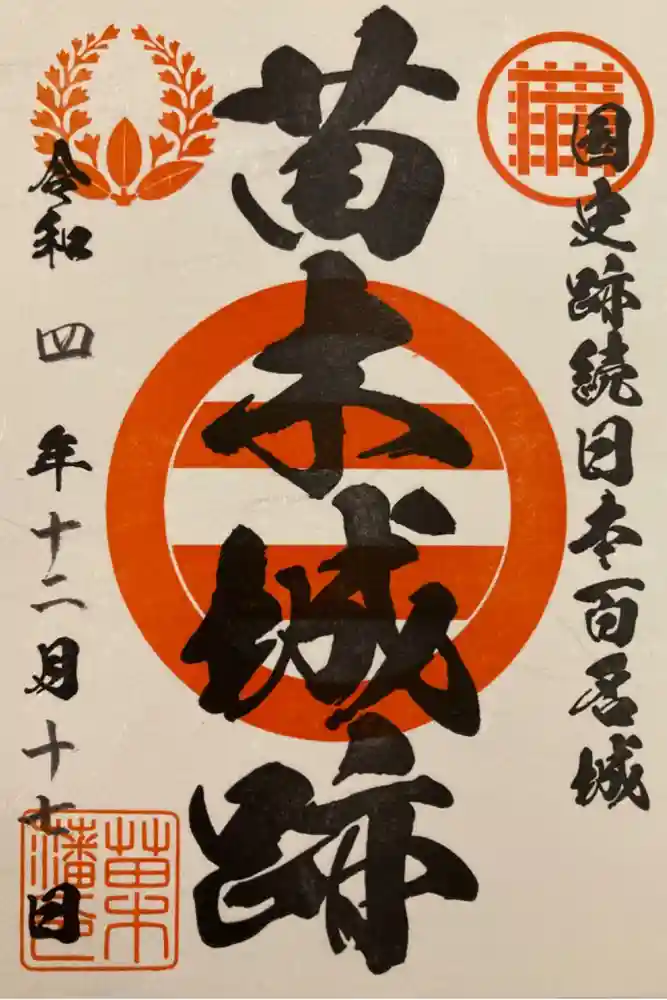 国史跡続日本百名城
苗木城跡
令和四年十二月十七日
苗木